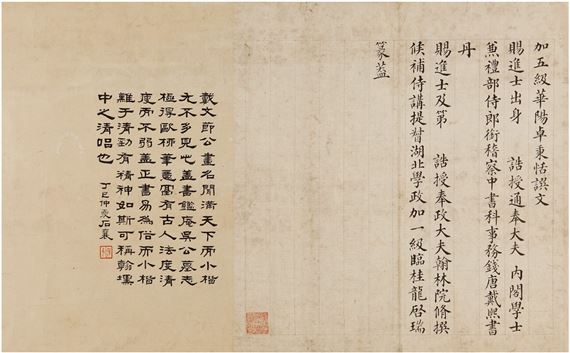 加五級華陽卓秉恬譔文
賜進士出身 誥授通奉大夫 內閣學士
兼禮部侍郎銜稽察中書科事務錢唐戴熙書
丹
賜進士及第 誥授奉政大夫翰林院修撰
候補侍講提督湖北學政加一級臨桂龍啟瑞
篆蓋
戴文節公畫名聞滿天下而小楷
尤不多見此蓋書鑑庵吳公墓志
極得歐柳筆意富有古人法度清
而不弱蓋正書易為俗而小楷
難于清勁有精神如斯可稱翰墨
中之清唱也
丁巳仲 石襄